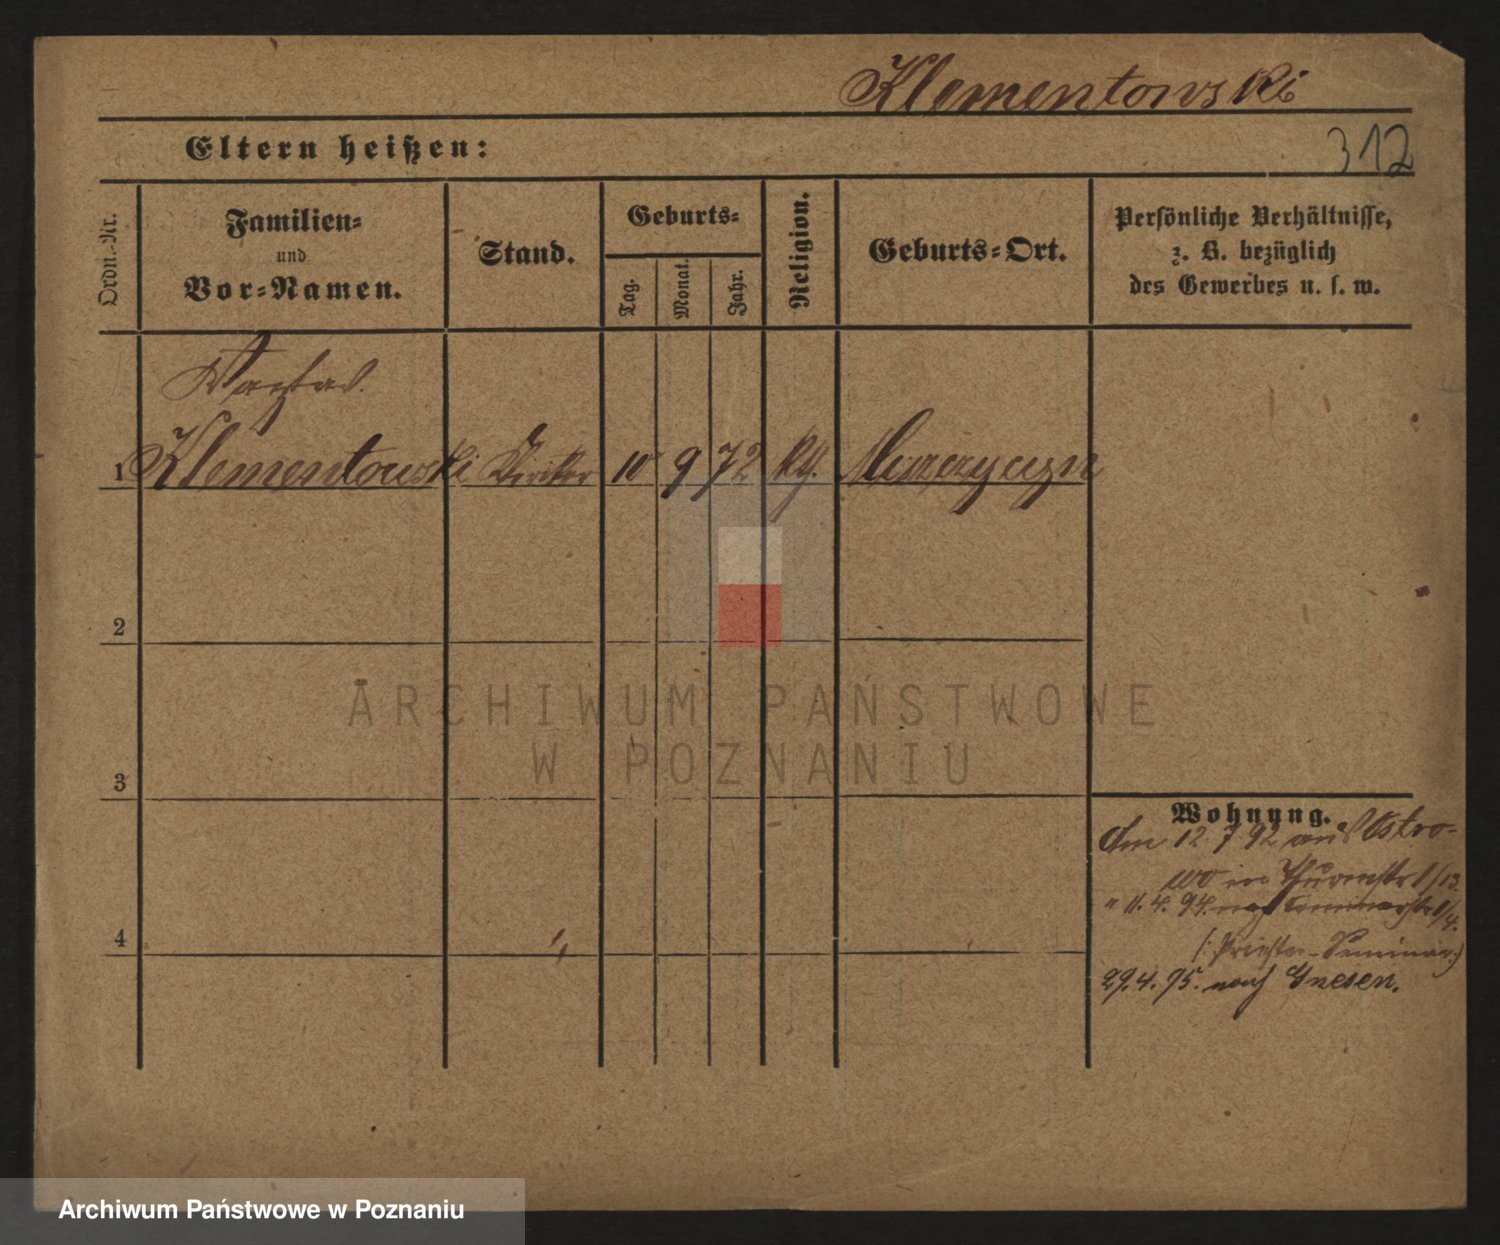 Klementowski
Eltern heißen:
312
Ordn.-Nr.
Familien-
und
Vor-Namen.
Stand.
Geburts-
Tag.
Monat.
Jahr.
Religion.
Geburts-Ort.
Persönliche Verhältnisse,
z. B. bezüglich
des Gewerbes u. s. w.
1 Klementowski 10 9 72 kth.
2
3
4
Wohnung.
Am 12.7.92 aus Ostro-
wo in Thurmstr 1/13.
" 11.4.94.
(: Priester-Seminar:)
29.4.95. nach Gnesen.
ARCHIWUM PAŃSTWOWE
W POZNANIU
Archiwum Państwowe w Poznaniu